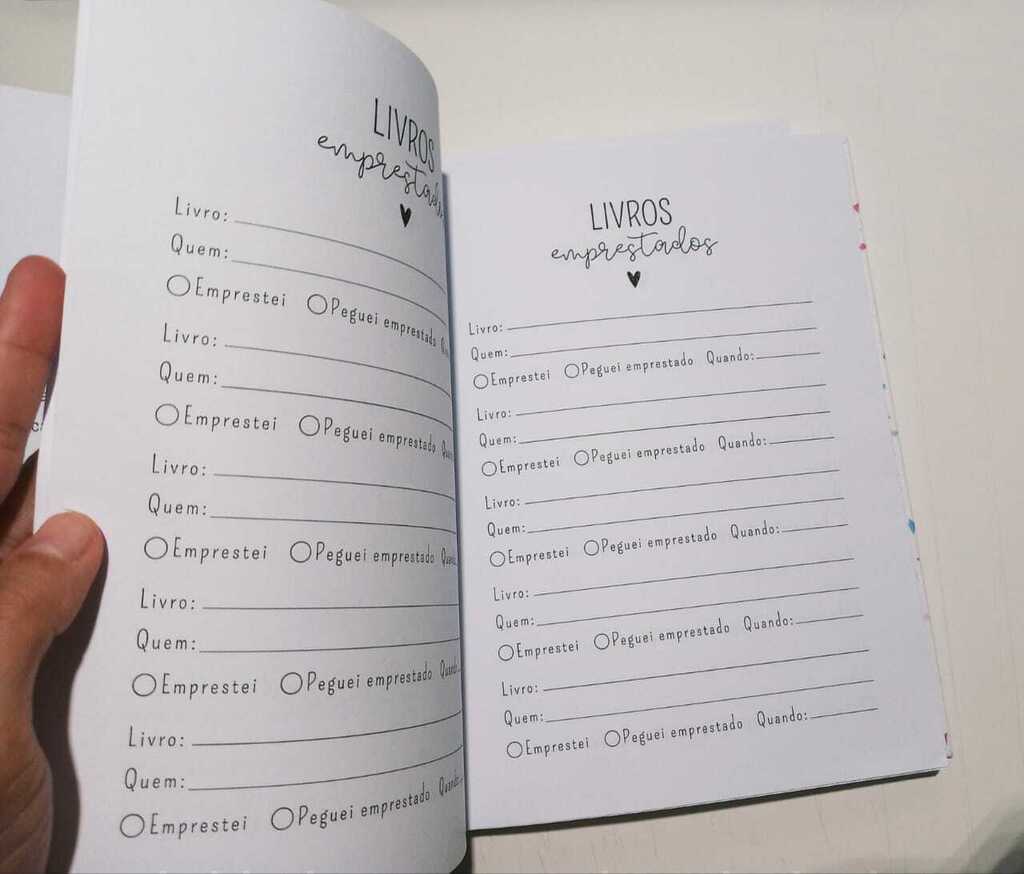 LIVROS
emprestados
Livro:
Quem:
Emprestei Peguei emprestado
Livro:
Quem:
Emprestei Peguei emprestado
Livro:
Quem:
Emprestei Peguei emprestado
Livro:
Quem:
Emprestei Peguei emprestado
Livro:
Quem:
Emprestei Peguei emprestado
LIVROS
emprestados
Livro:
Quem:
Emprestei Peguei emprestado Quando:
Livro:
Quem:
Emprestei Peguei emprestado Quando:
Livro:
Quem:
Emprestei Peguei emprestado Quando:
Livro:
Quem:
Emprestei Peguei emprestado Quando:
Livro:
Quem:
Emprestei Peguei emprestado Quando: